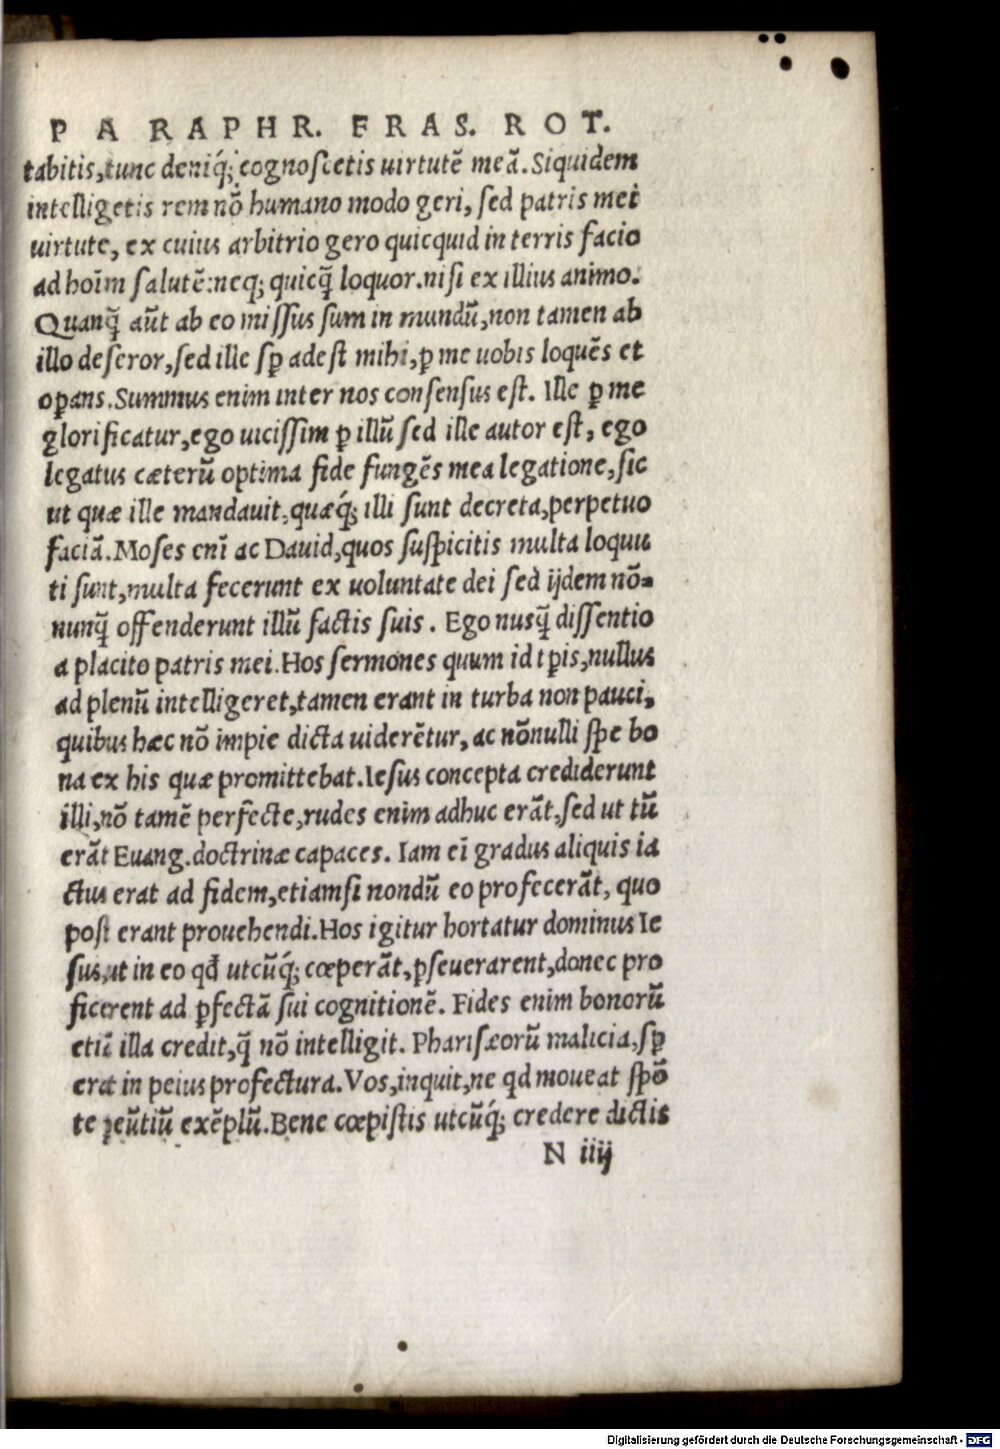 PARAPHR. ERAS. ROT.
tabitis, tunc deniq́; cognoscetis uirtutē meā. Siquidem
intelligetis rem nō humano modo geri, sed patris mei
uirtute, ex cuius arbitrio gero quicquid in terris facio
ad hoīm salutē: neq; quicq̄ loquor. nisi ex illius animo.
Quanq̄ aūt ab eo missus sum in mundū, non tamen ab
illo deseror, sed ille sꝑ adest mihi, ꝑ me uobis loquēs et
oꝑans. Summus enim inter nos consensus est. Ille ꝑ me
glorificatur, ego uicissim ꝑ illū sed ille autor est, ego
legatus cæterū optima fide fungēs mea legatione, sic
ut quæ ille mandauit, quæq́; illi sunt decreta, perpetuo
faciā. Moses enī ac Dauid, quos suspicitis multa loquu
ti sunt, multa fecerunt ex uoluntate dei sed ijdem nō-
nunq̄ offenderunt illū factis suis. Ego nusq̄ dissentio
a placito patris mei. Hos sermones quum id tꝑis, nullus
ad plenū intelligeret, tamen erant in turba non pauci,
quibus hæc nō impie dicta uiderētur, ac nōnulli spe bo
na ex his quæ promittebat. Iesus concepta crediderunt
illi, nō tamē perfecte, rudes enim adhuc erāt, sed ut tū
erāt Euang. doctrinæ capaces. Iam eī gradus aliquis ia
ctus erat ad fidem, etiamsi nondū eo profecerāt, quo
post erant prouehendi. Hos igitur hortatur dominus Ie
sus, ut in eo qđ utcūq́; cœperāt, ꝑseuerarent, donec pro
ficerent ad ꝑfectā sui cognitionē. Fides enim bonorū
etiū illa credit, q̄ nō intelligit. Pharisæorū malicia, sꝑ
erat in peius profectura. Vos, inquit, ne qd moueat spō
te ꝑeūtiū exēplū. Bene cœpistis utcūq́; credere dictis
N iiij
Digitalisierung gefördert durch die Deutsche Forschungsgemeinschaft - DFG